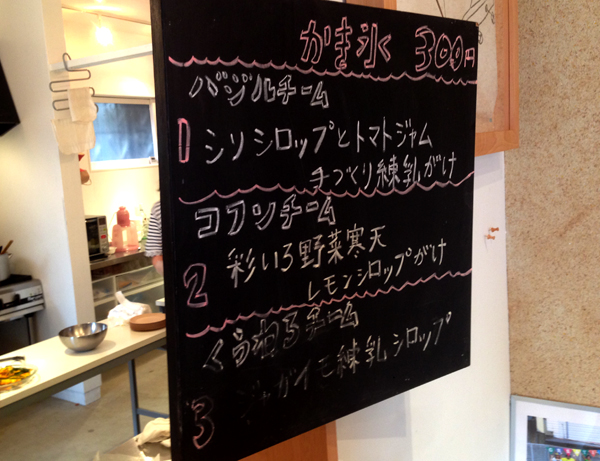 かき氷 300円
バジルチーム
1 シソシロップとトマトジャム
手づくり練乳がけ
コフンチーム
2 彩いろ野菜寒天
レモンシロップがけ
くらわるチーム
3 ジャガイモ練乳シロップ